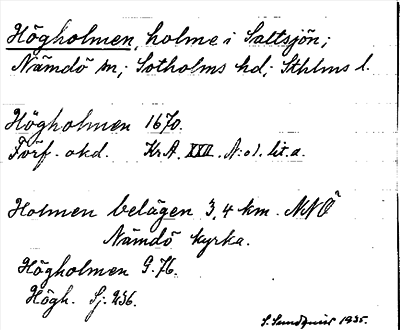 Högholmen, holme i Saltsjön;
Nämdö sn; Sotholms hd; Sthlms l.
Högholmen 1670.
Förf. okd. Kr.A. XXII. A:o). lit. a.
Holmen belägen 3,4 km. NNÖ
Nämdö kyrka.
Högholmen G.76.
Högh. Sj. 236.
S. Sundquist 1935.